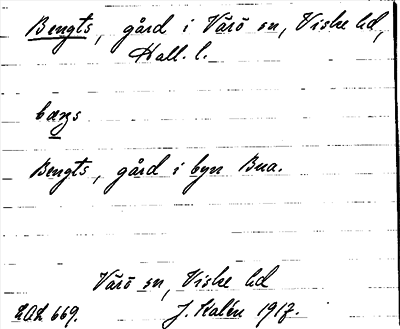 Bengts, gård i Värö sn, Viske hd,
Hall. l.
Bengts, gård i byn Bua.
Värö sn, Viske hd
LAL 669. J. Kalén 1917.